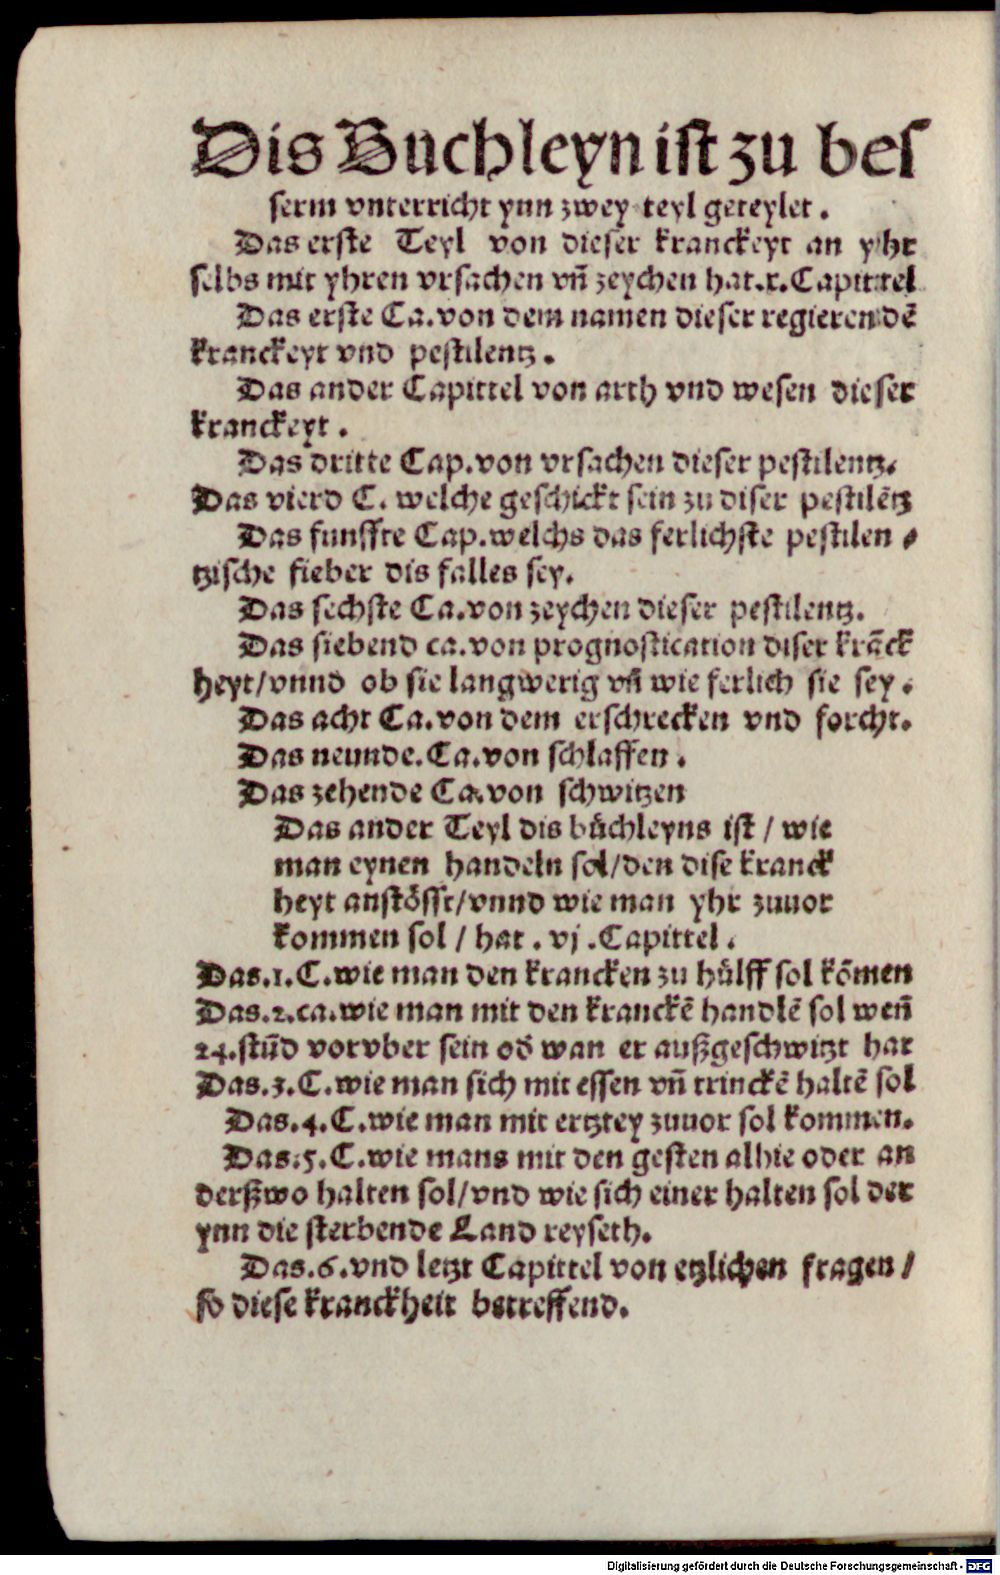 Dis Buchleyn ist zu bes
serm vnterricht ynn zwey teyl geteylet.
Das erste Teyl von dieser kranckeyt an yhr
selbs mit yhren vrsachen vn̄ zeychen hat.x.Capittel
Das erste Ca.von dem namen dieser regierendē
kranckeyt vnd pestilentz.
Das ander Capittel von arth vnd wesen dieser
kranckeyt.
Das dritte Cap.von vrsachen dieser pestilentz.
Das vierd C. welche geschickt sein zu diser pestilētz
Das funffte Cap.welchs das ferlichste pestilen⸗
tzische fieber dis falles sey.
Das sechste Ca.von zeychen dieser pestilentz.
Das siebend ca.von prognostication diser krāck
heyt/vnnd ob sie langwerig vn̄ wie ferlich sie sey.
Das acht Ca.von dem erschrecken vnd forcht.
Das neunde.Ca.von schlaffen.
Das zehende Ca.von schwitzen
Das ander Teyl dis bůchleyns ist / wie
man eynen handeln sol/den dise kranck
heyt anstősst/vnnd wie man yhr zuuor
kommen sol / hat . vj .Capittel.
Das.1.C.wie man den krancken zu hůlff sol kōmen
Das.2.ca.wie man mit den kranckē handlē sol wen̄
24.stūd vorvber sein od̕ wan er außgeschwitzt hat
Das.3.C.wie man sich mit essen vn̄ trinckē haltē sol
Das.4.C.wie man mit ertztey zuuor sol kommen.
Das.5.C.wie mans mit den gesten alhie oder an
derßwo halten sol/vnd wie sich einer halten sol der
ynn die sterbende Land reyseth.
Das.6.vnd letzt Capittel von etzlichen fragen /
so diese kranckheit betreffend.
Digitalisierung gefördert durch die Deutsche Forschungsgemeinschaft - DFG